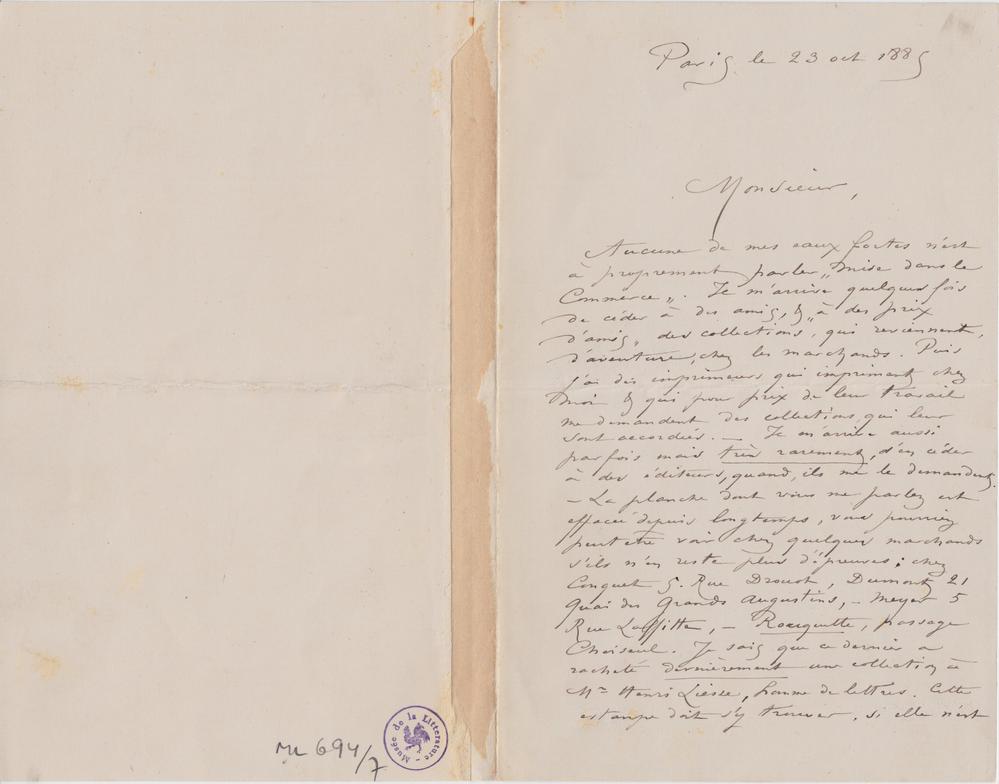 Paris le 23 oct 1885
Monsieur,
Aucune de mes eaux fortes n'est
à proprement parler „mise dans le
Commerce„. Je m'arrive quelques fois
de céder à des amis, & „à des prix
d'amis„ des collections, qui reviennent,
d'aventure, chez les marchands. Puis
j'ai des imprimeurs qui impriment chez
moi & qui pour prix de leur travail
me demandent des collections qui leur
sont accordées. — Je m'arrive aussi
parfois mais très rarement, d'en céder
à des éditeurs, quand, ils me le demandent.
— La planche dont vous me parlez est
effacée depuis longtemps, vous pourriez
peut être voir chez quelques marchands
s'ils n'en reste plus d'épreuves; chez
Conquet 5. Rue Drouot, Dumont 21
Quai des Grands Augustins, — Meyer 5
Rue Laffitte, — Rouquette, passage
Choiseul. Je sais que ce dernier a
racheté dernièrement une collection à
Mr Henri Liesse, homme de lettres. Cette
estampe doit s'y trouver, si elle n'est
ML 694/7
Musée de la Littérature